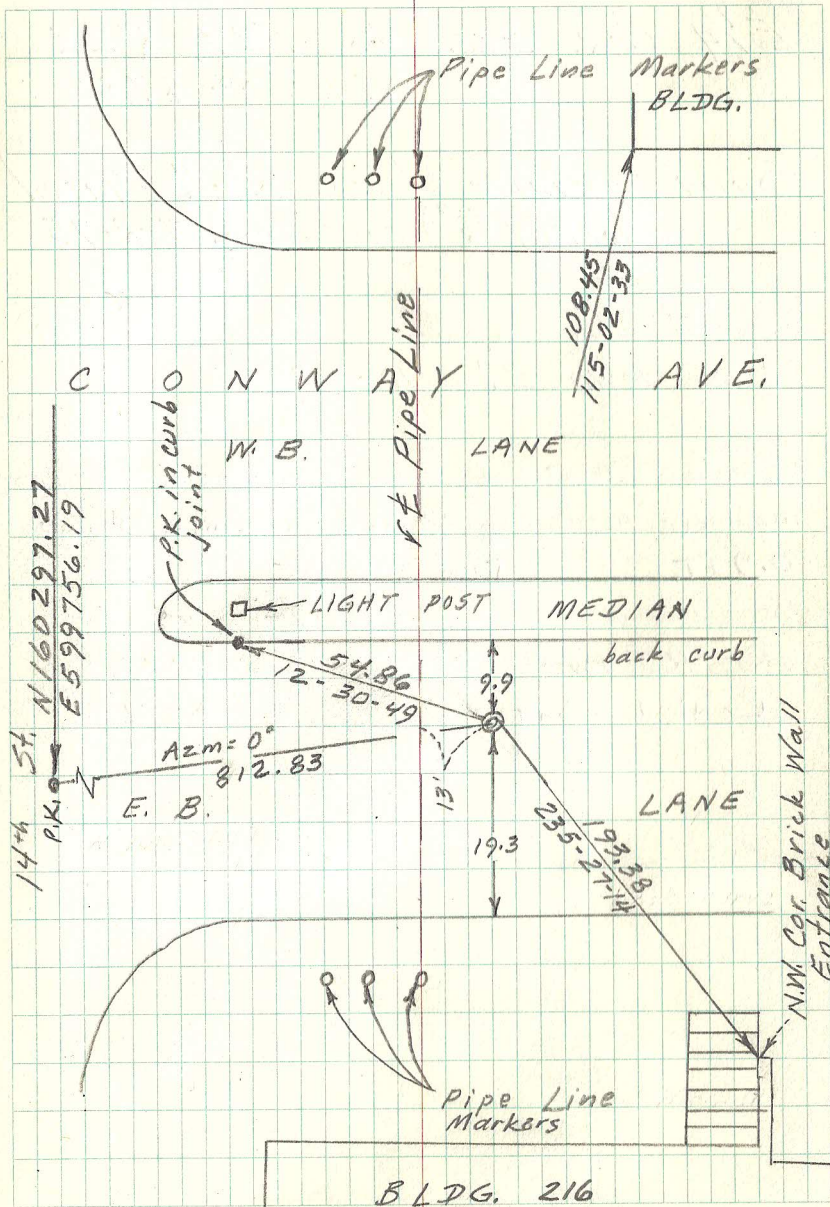 Pipe Line Markers
BLDG.
108.45
115-02-33
C O N W A Y AVE.
Pipe Line
W. B. LANE
P.K. in curb
joint
N 160 297.27
E 599756.19
LIGHT POST
MEDIAN
back curb
54.86
12-30-49
9.9
14th St.
P.K.
Azm=0°
812.83
13'
E. B. LANE
19.3
193.38
235-27-14
N.W. Cor. Brick Wall
Entrance
Pipe Line
Markers
BLDG. 216